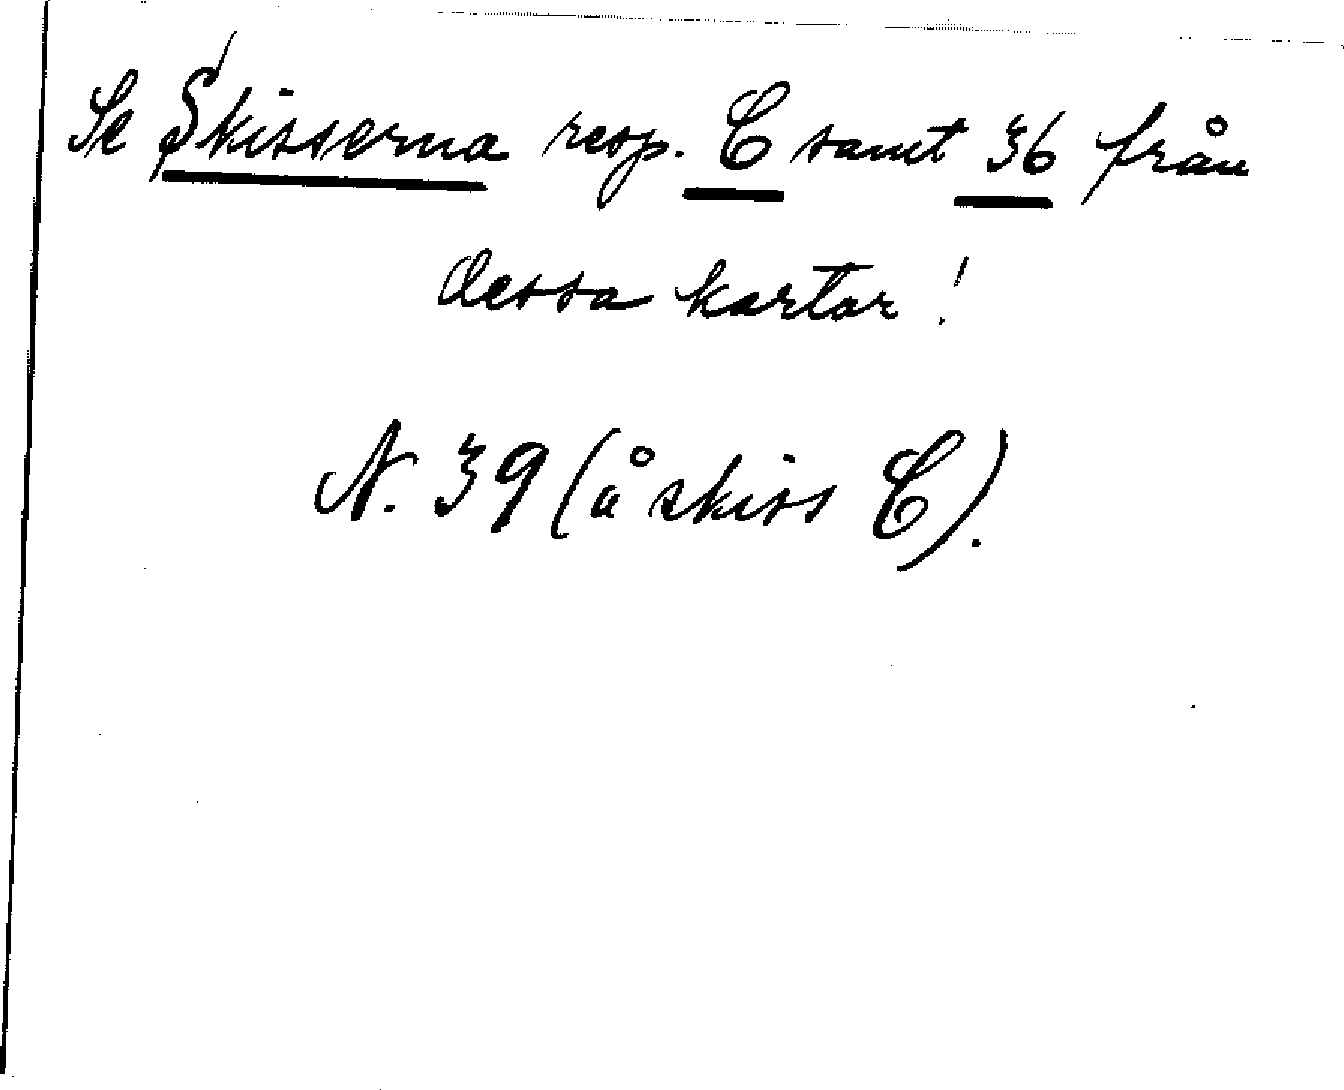 Se Skisserna resp. C samt 36 från
dessa kartor!
N. 39 (å skiss C).